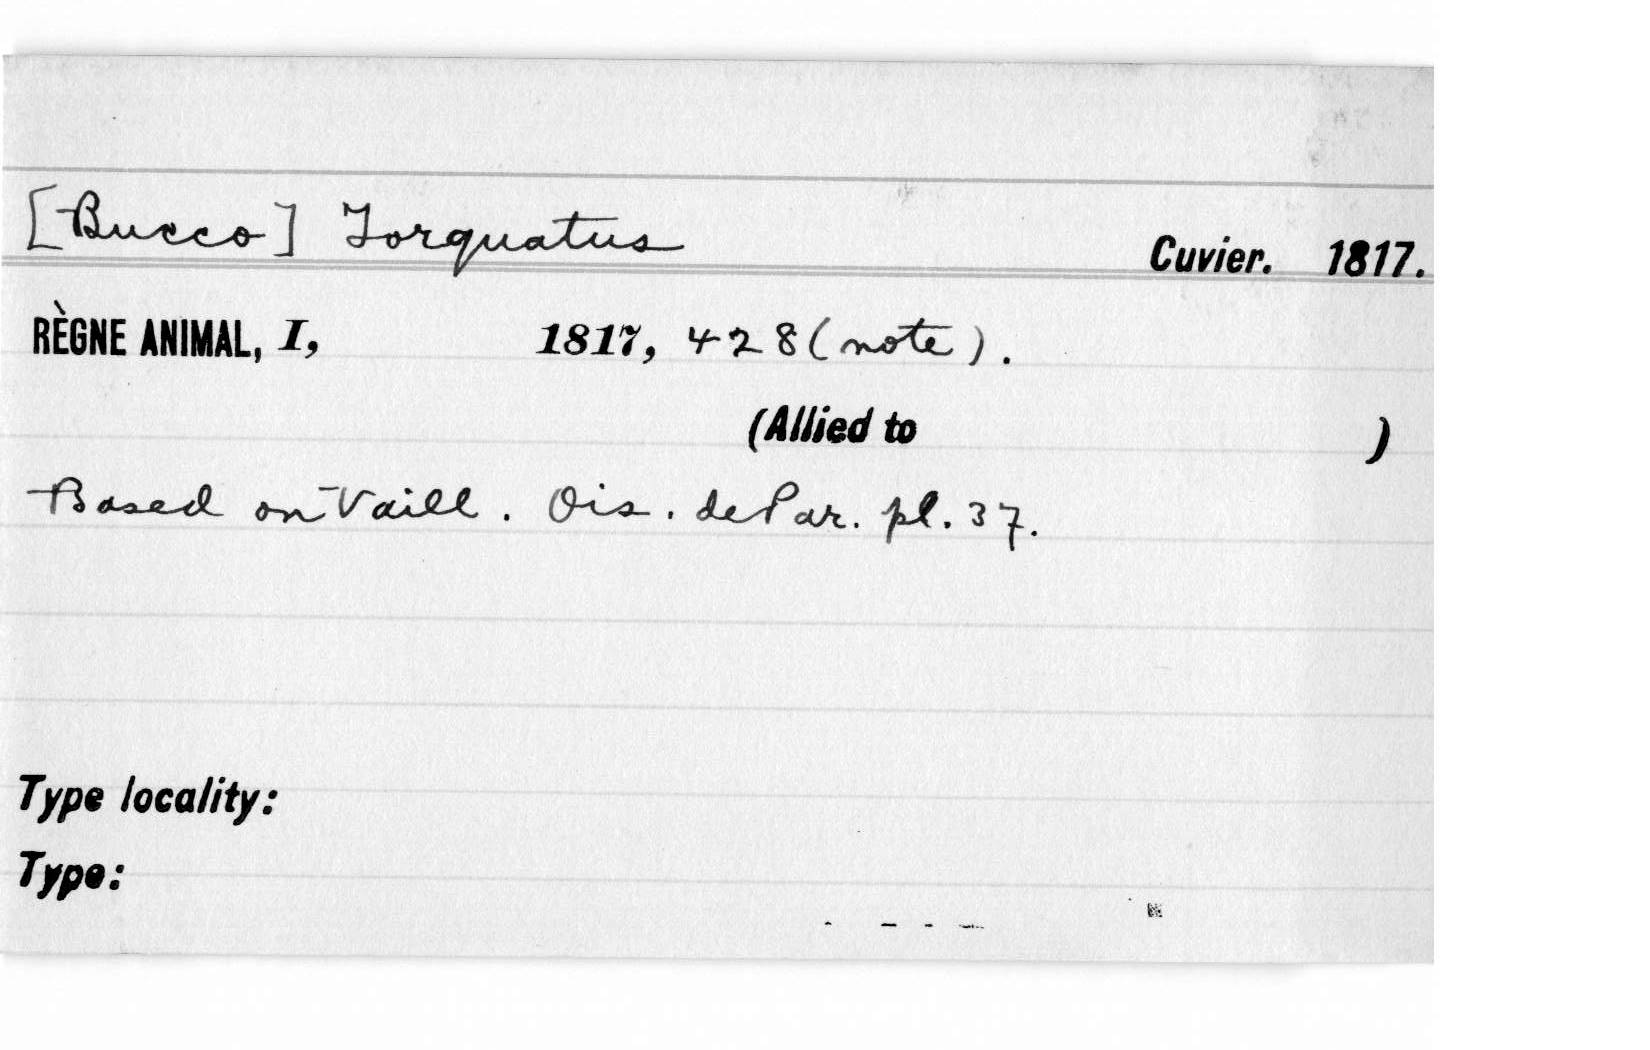 [Bucco] Torquatus Cuvier. 1817.
RÈGNE ANIMAL, I, 1817, 428 (note).
(Allied to )
Based on Vaill. Ois. de Par. pl. 37.
Type locality:
Type: